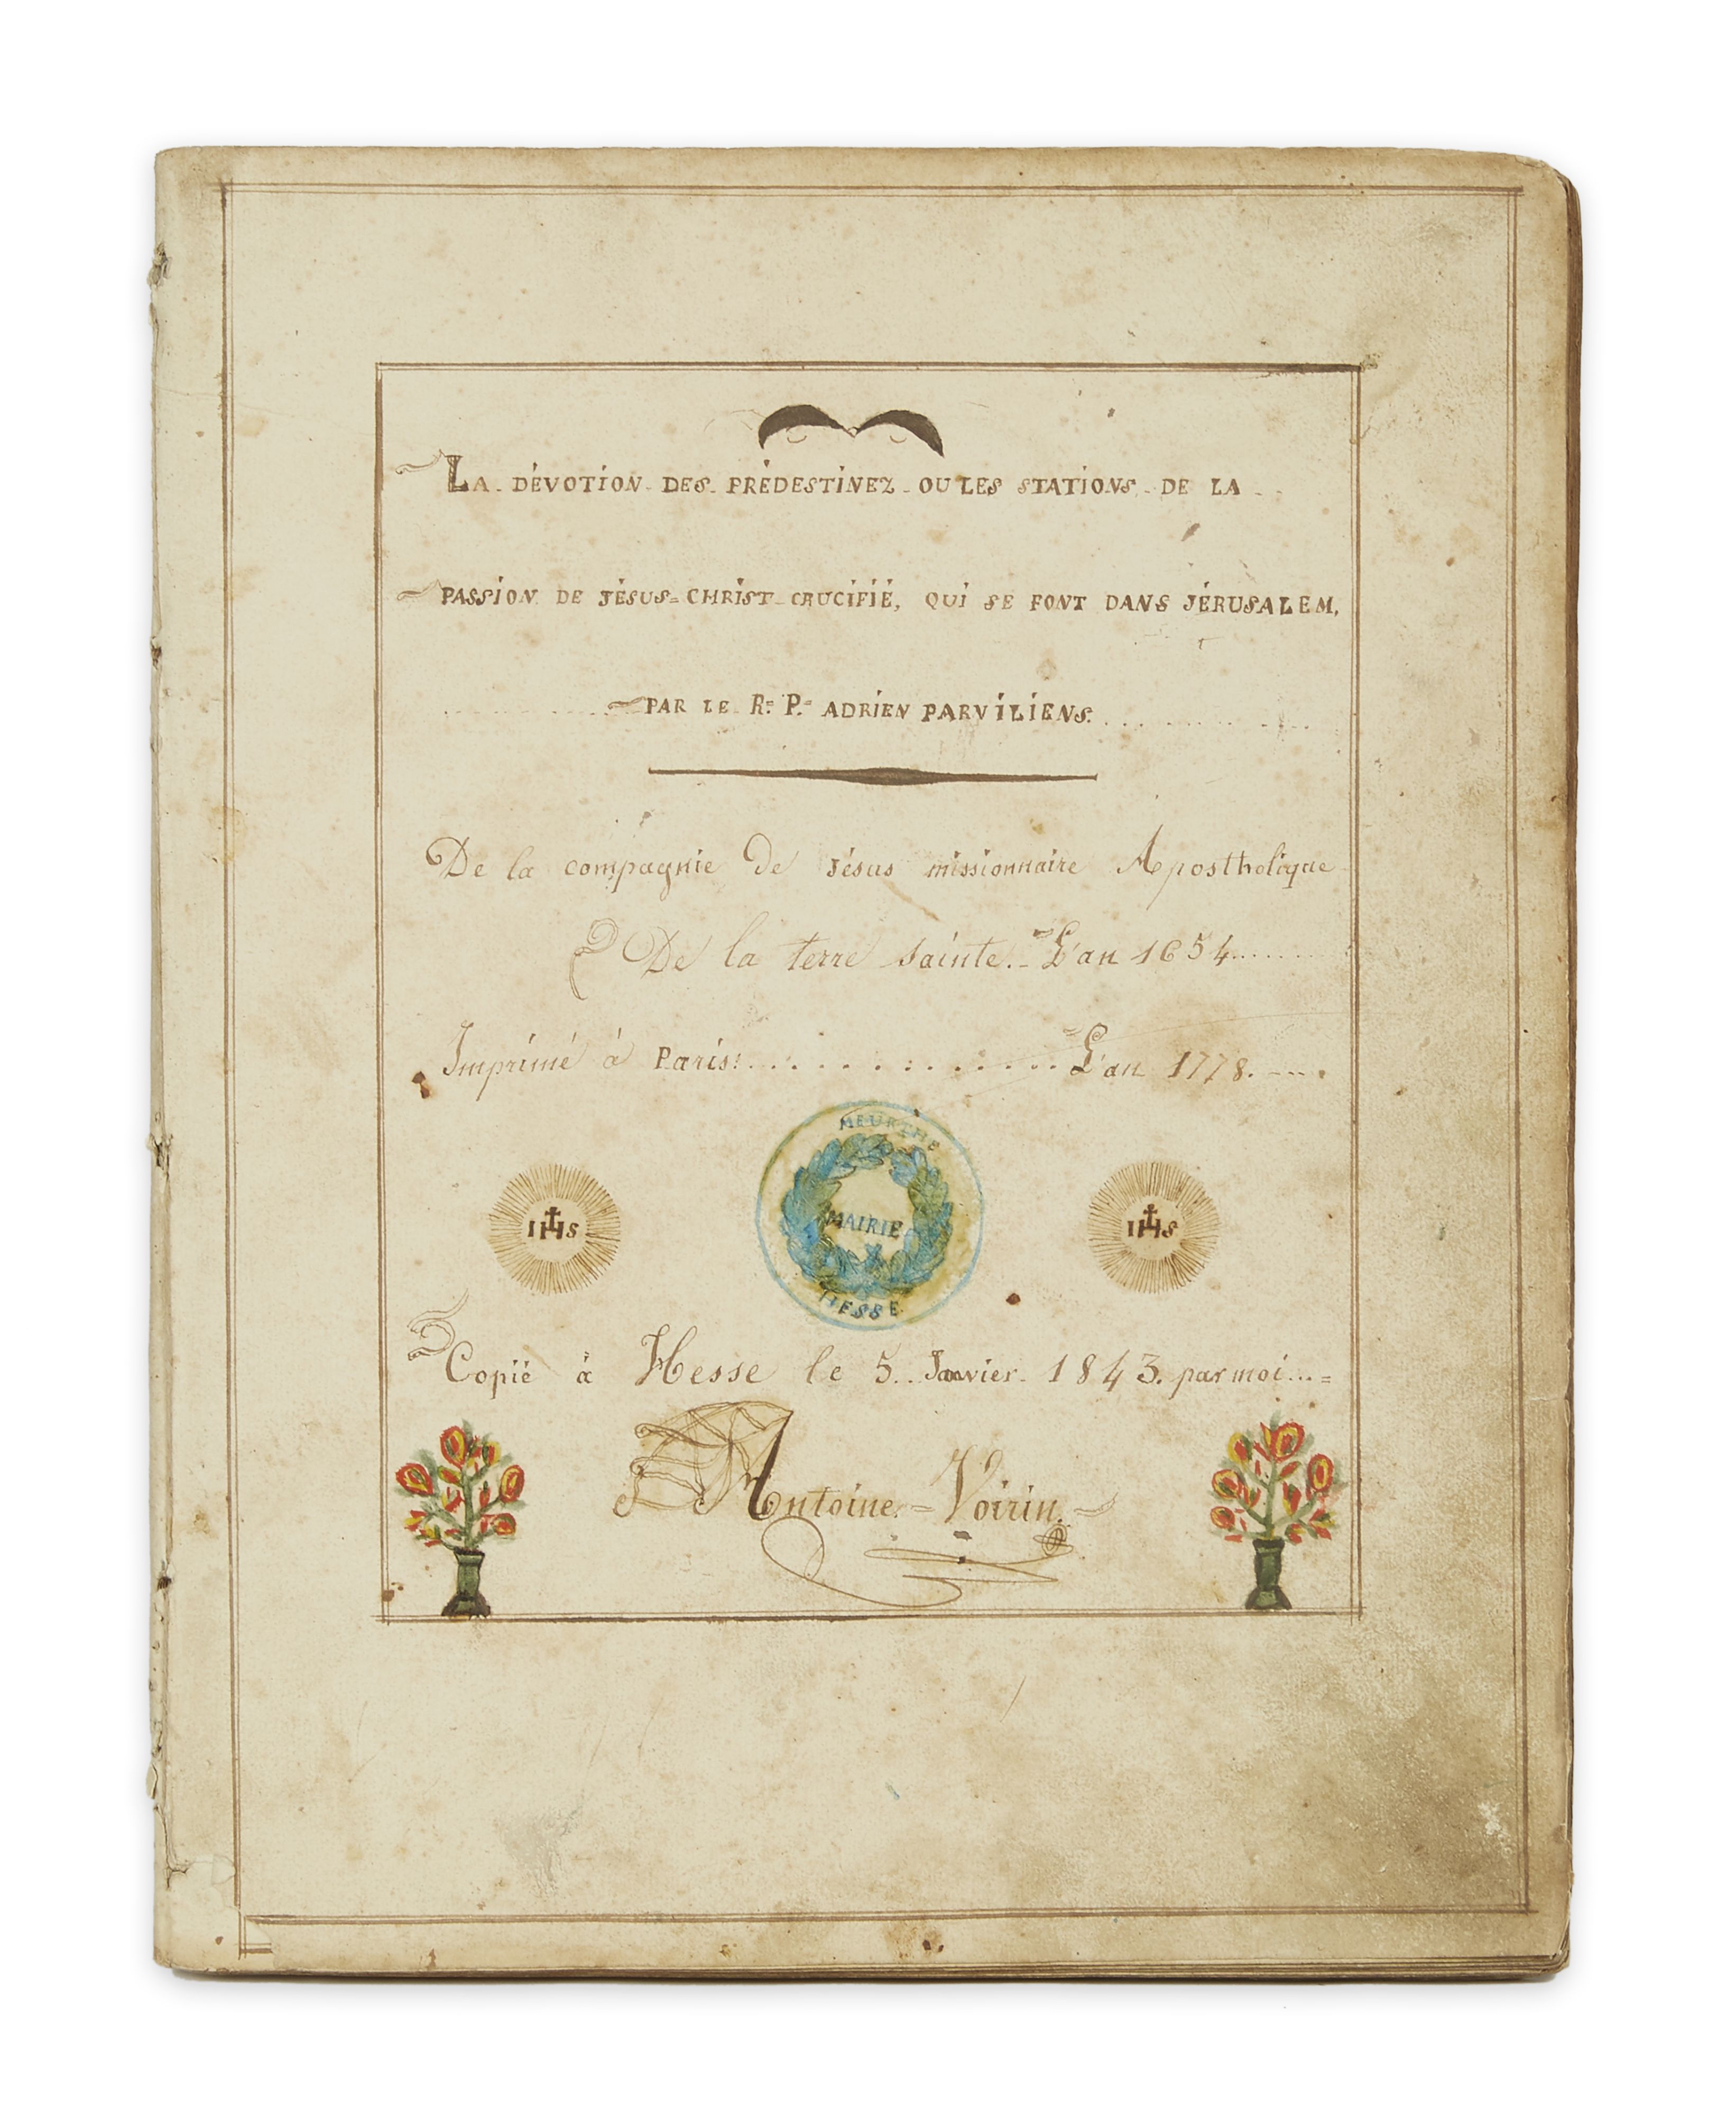 LA DÉVOTION DES PRÉDESTINEZ OU LES STATIONS DE LA
PASSION DE JÉSUS=CHRIST CRUCIFIÉ, QUI SE FONT DANS JÉRUSALEM,
PAR LE R. P. ADRIEN PARVILIENS.
De la compagnie de Jésus missionnaire Apostholique
De la terre sainte. L'an 1654........
Imprimé à Paris: . . . . . . . . . . . . . . . L'an 1778. ---.
MEURTHE
IHS
MAIRIE
IHS
HESSE
Copié à Hesse le 5.. Janvier 1843. par moi...=
Antoine = Voirin.